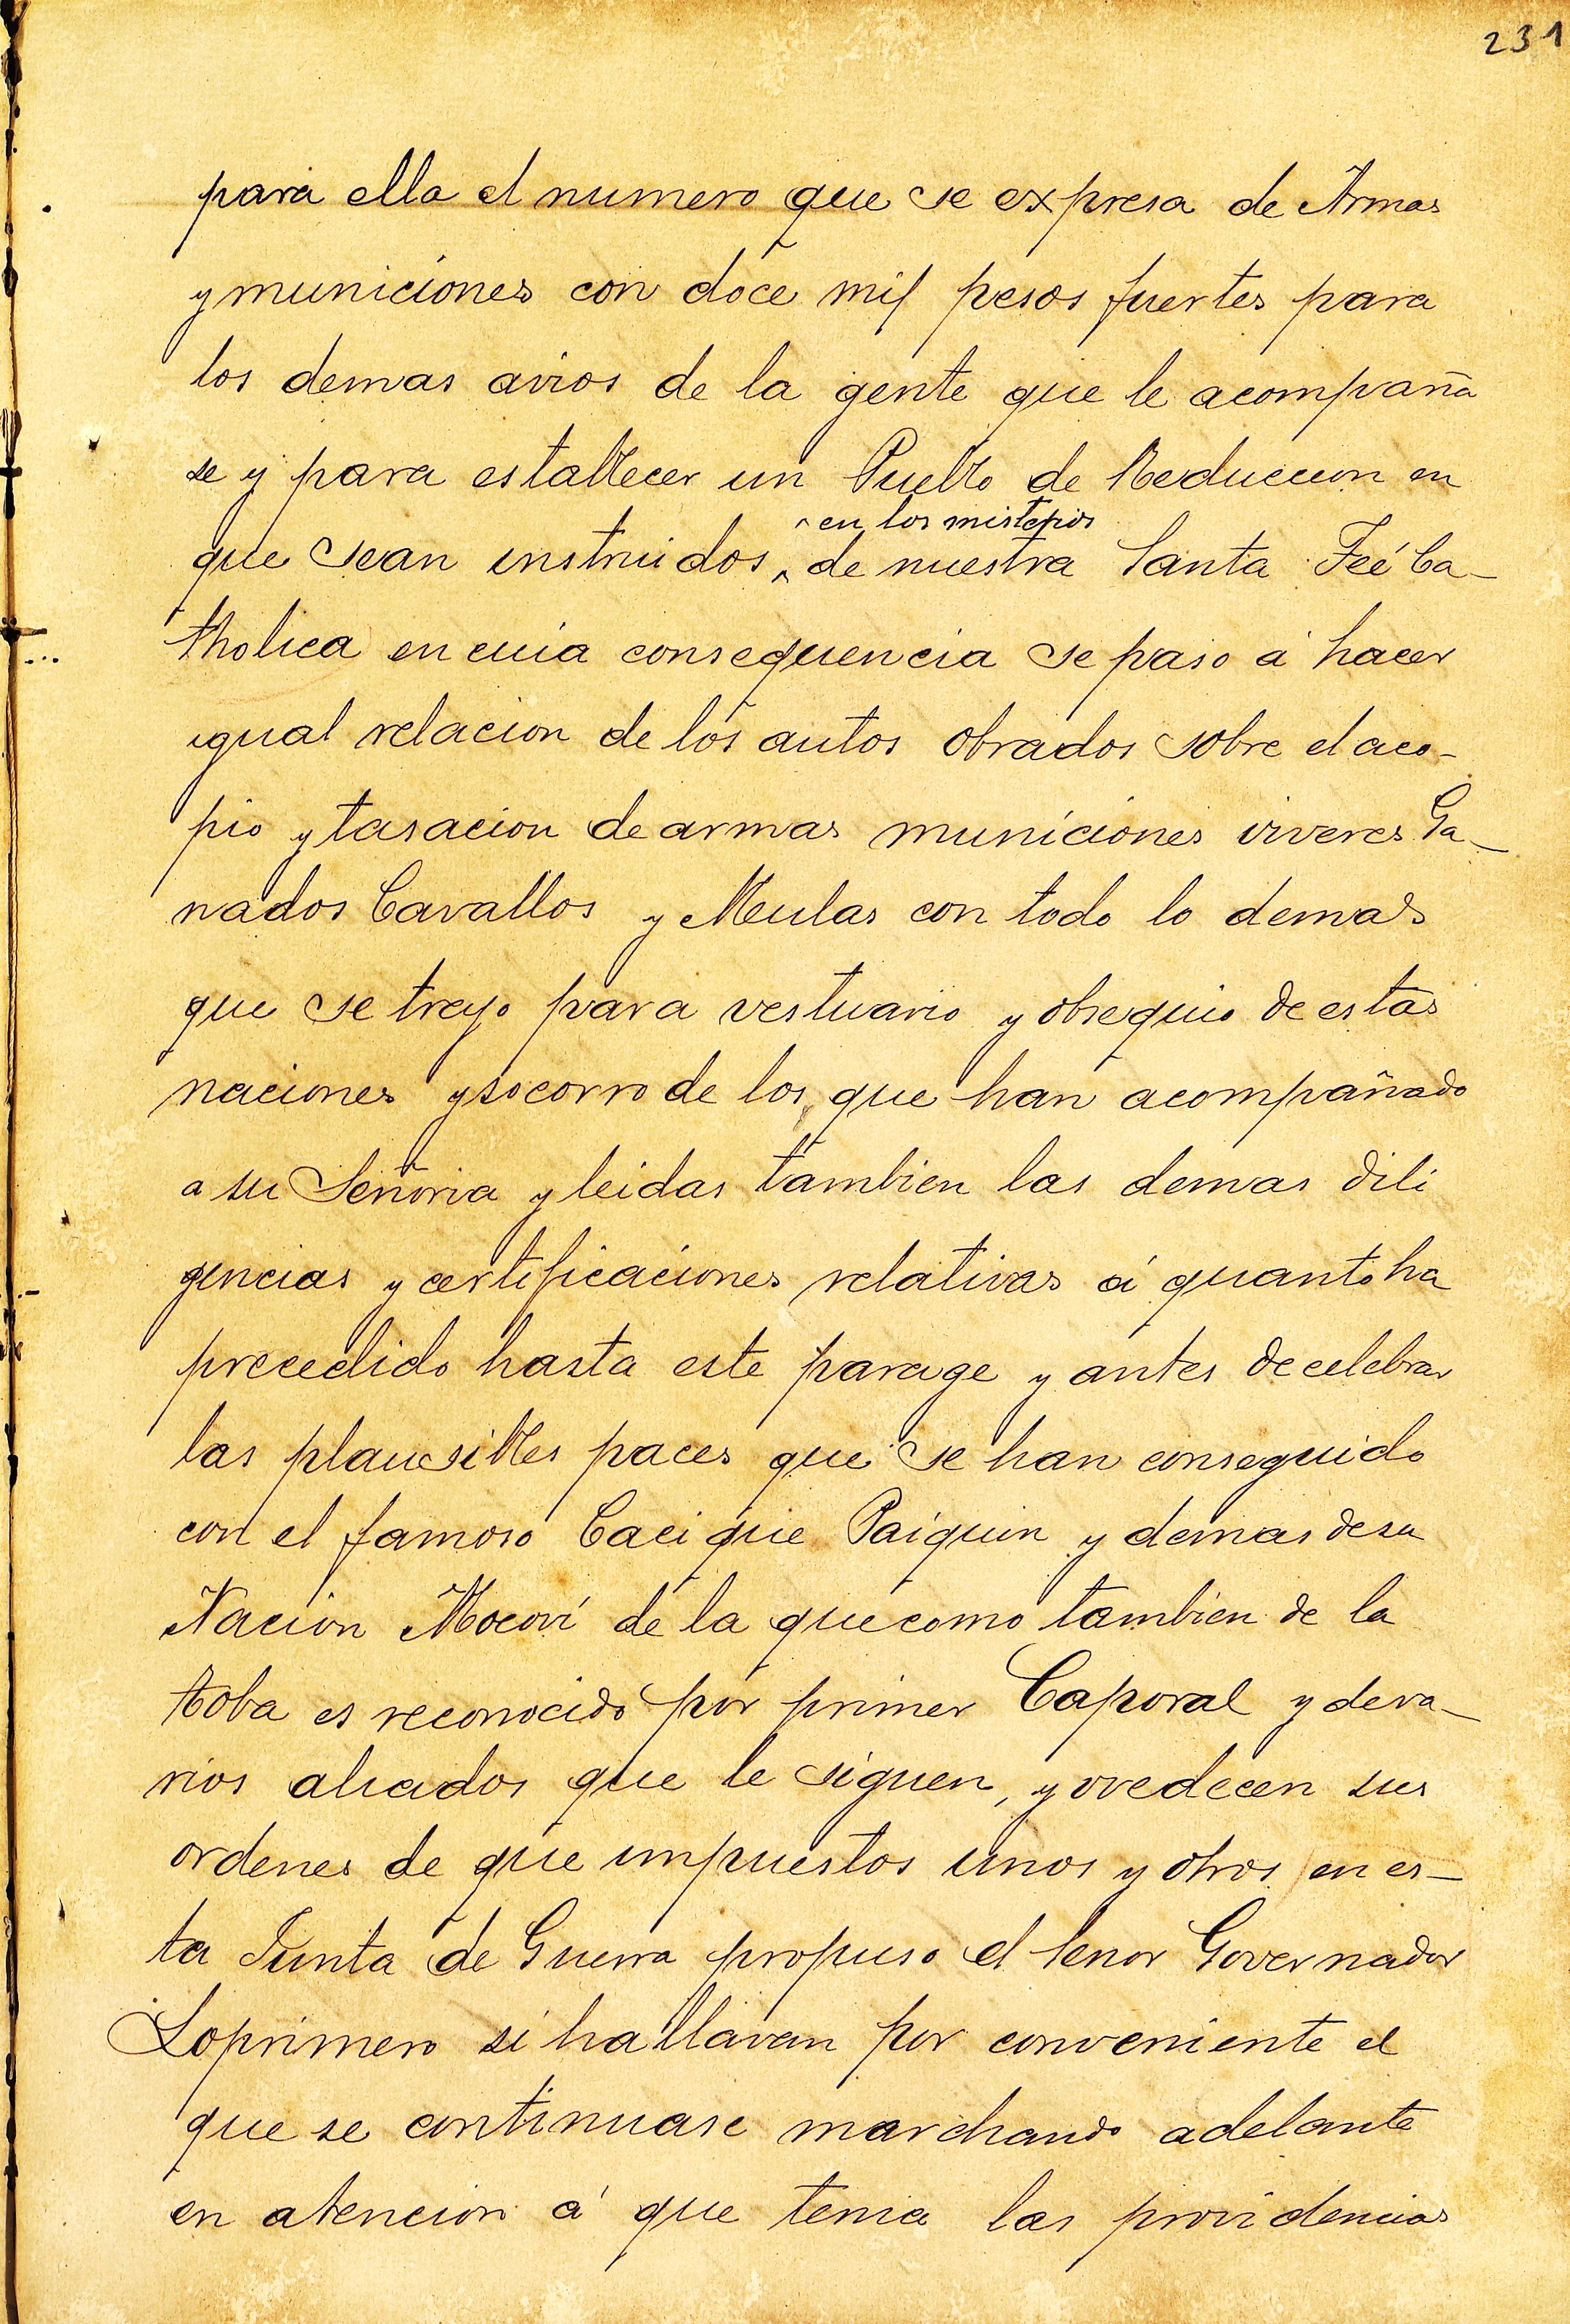 231
para ella el numero que se expresa de Armas
y municiones con doce mil pesos fuertes para
los demas avios de la gente que le acompaña
se y para establecer un Pueblo de Reduccion en
^ en los misterios
que sean instruidos ^ de nuestra Santa Feé Ca-
tholica en cuia consequencia se paso á hacer
igual relacion de los autos obrados sobre el aco-
pio y tasacion de armas municiones viveres Ga-
nados Cavallos y Mulas con todo lo demas
que se trayo para vestuario y obsequio de estas
naciones y socorro de los que han acompañado
a su Señoria y leidas tambien las demas dili
gencias y certificaciones relativas á quanto ha
precedido hasta este parage y antes de celebrar
las plausibles paces que se han conseguido
con el famoso Cacique Paiquin y demas de su
Nacion Mocoví de la que como tambien de la
toba es reconocido por primer Caporal y de va-
rios aliados que le siguen, y ovedecen sus
ordenes de que impuestos unos y otros en es-
ta Junta de Guerra propuso el Senor Governador
Lo primero si hallavan por conveniente el
que se continuase marchando adelante
en atencion á que tenia las providencias